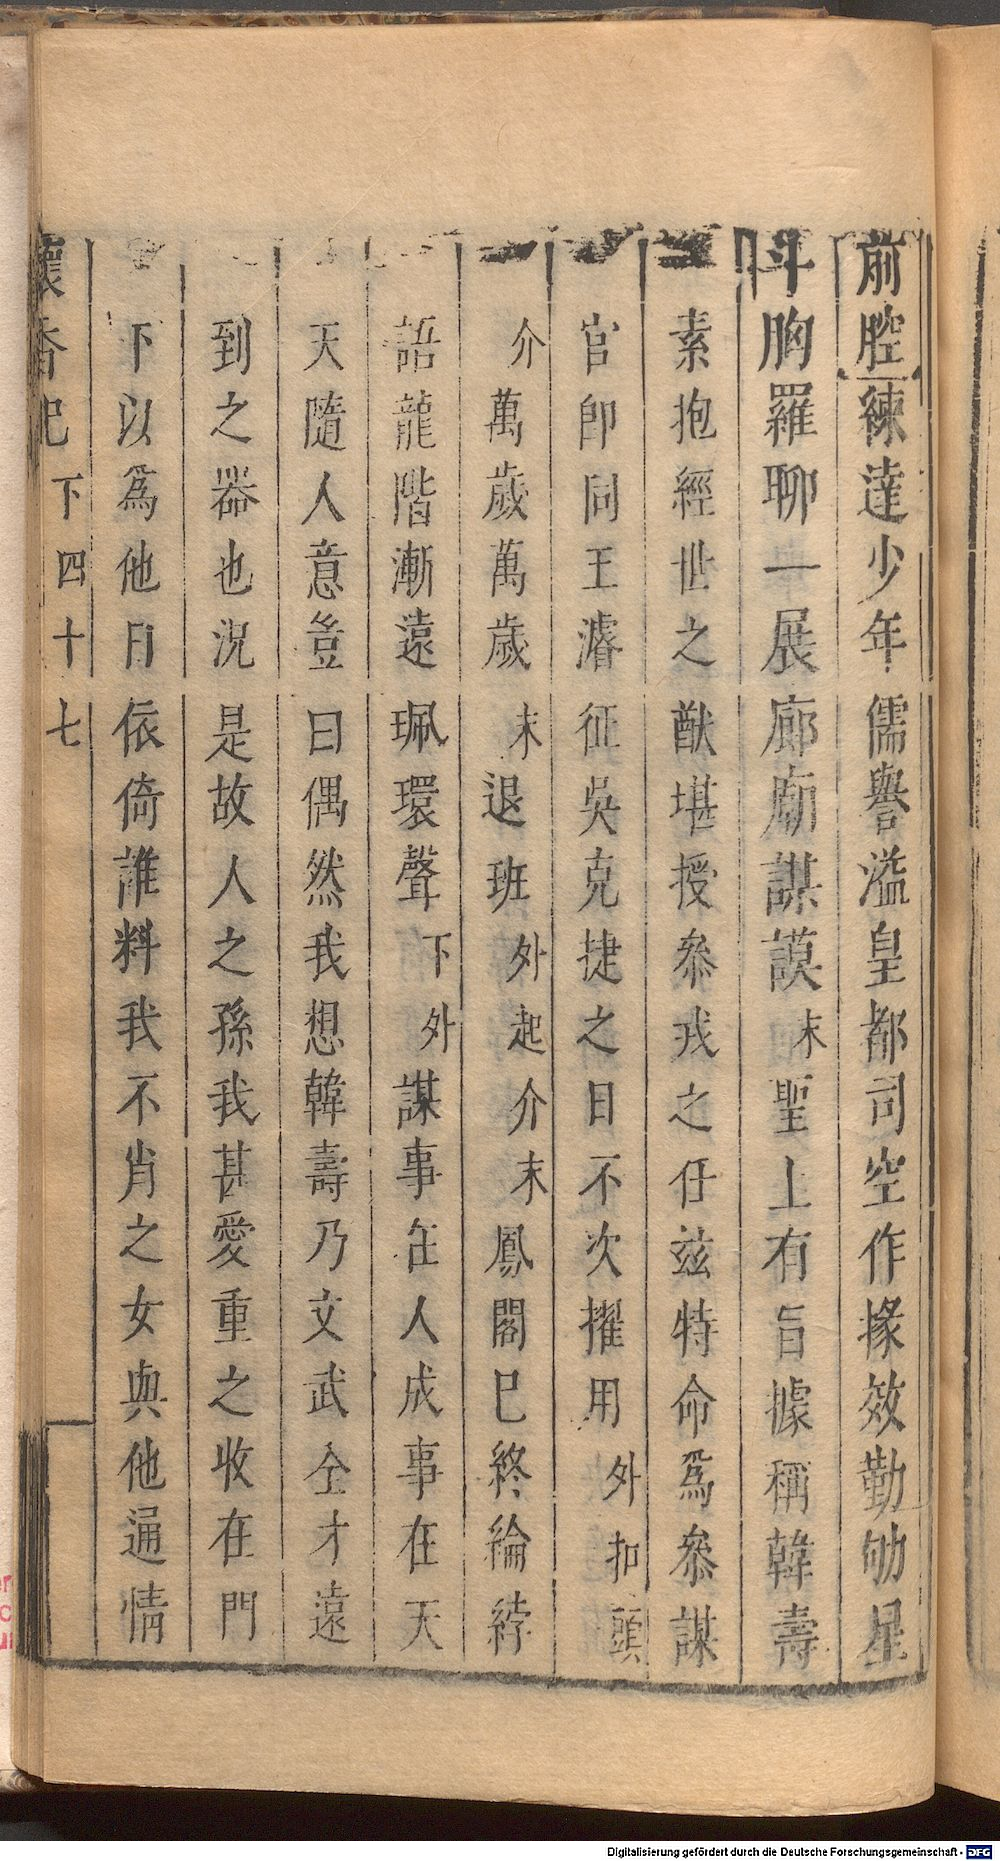 前腔練達少年儒譽溢皇都司空作掾效勤劬星
斗胸羅聊一展廊廟謀謨末聖上有旨據稱韓壽
素抱經世之猷堪授叅戎之任兹特命爲叅謀
官卽同王濬征吳克捷之日不次擢用外扣頭
介萬歲萬歲末退班外起介末鳳閣已終綸綍
語龍階漸遠珮環聲下外謀事在人成事在天
天隨人意豈曰偶然我想韓壽乃文武全才遠
到之器也况是故人之孫我甚愛重之收在門
下以爲他日依倚誰料我不肖之女與他通情
懷香記 下 四十七
Digitalisierung gefördert durch die Deutsche Forschungsgemeinschaft - DFG